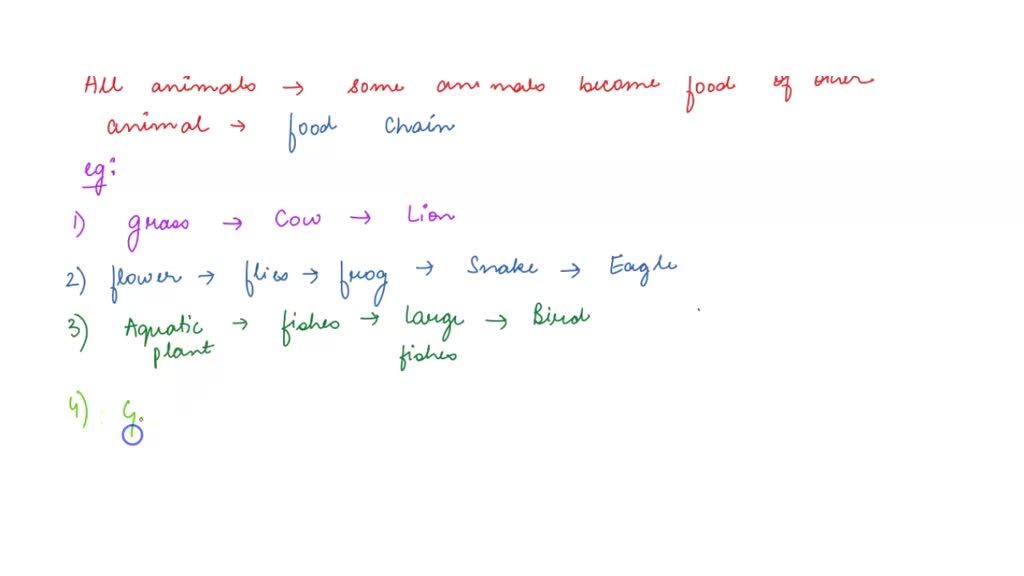 All animals → some animals become food of other
animal → food chain
eg:
1) grass → Cow → Lion
2) flower → flies → frog → Snake → Eagle
3) Aquatic plant → fishes → Large fishes → Bird
4) G